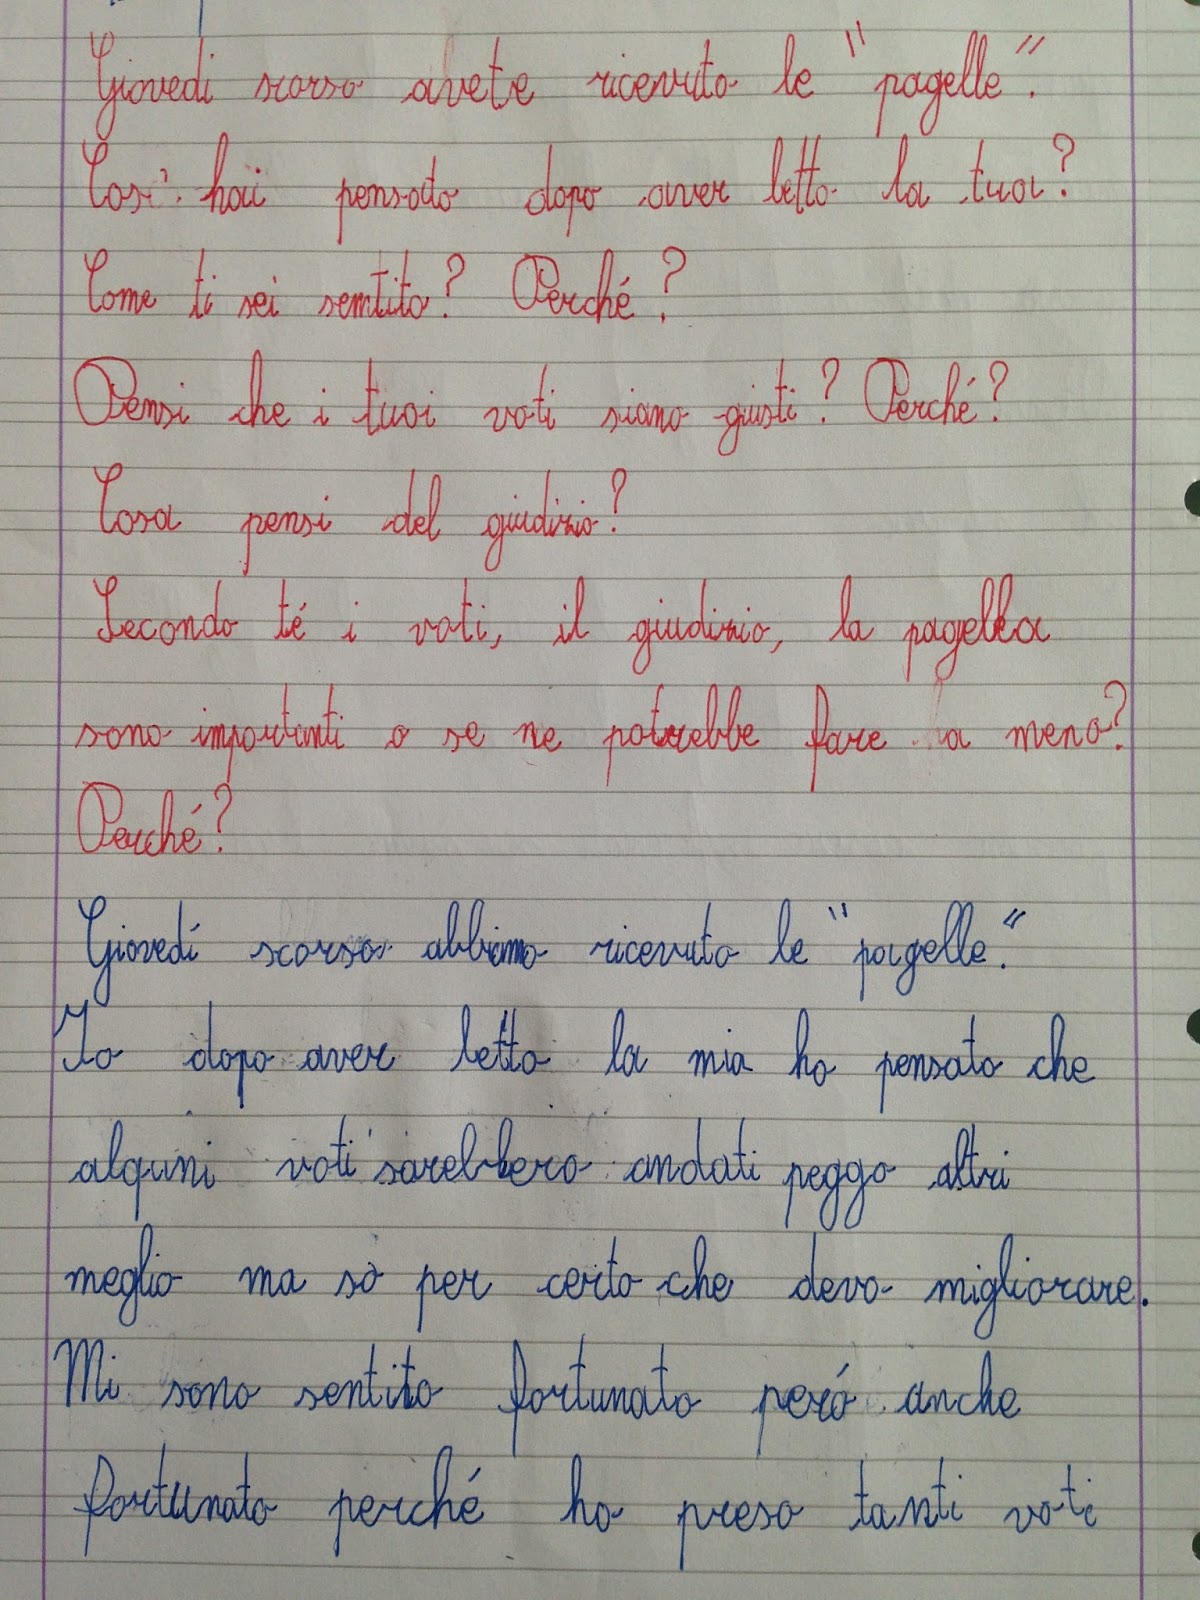 Giovedì scorso avete ricevuto le "pagelle".
Cos' hai pensato dopo aver letto la tua?
Come ti sei sentito? Perché?
Pensi che i tuoi voti siano giusti? Perché?
Cosa pensi del giudizio?
Secondo té i voti, il giudizio, la pagella
sono importanti o se ne potrebbe fare a meno?
Perché?
Giovedí scorso abbiamo ricevuto le "pagelle."
Io dopo aver letto la mia ho pensato che
alquni voti sarebbero andati peggo altri
meglio ma sò per certo che devo migliorare.
Mi sono sentito fortunato peró anche
fortunato perché ho preso tanti voti